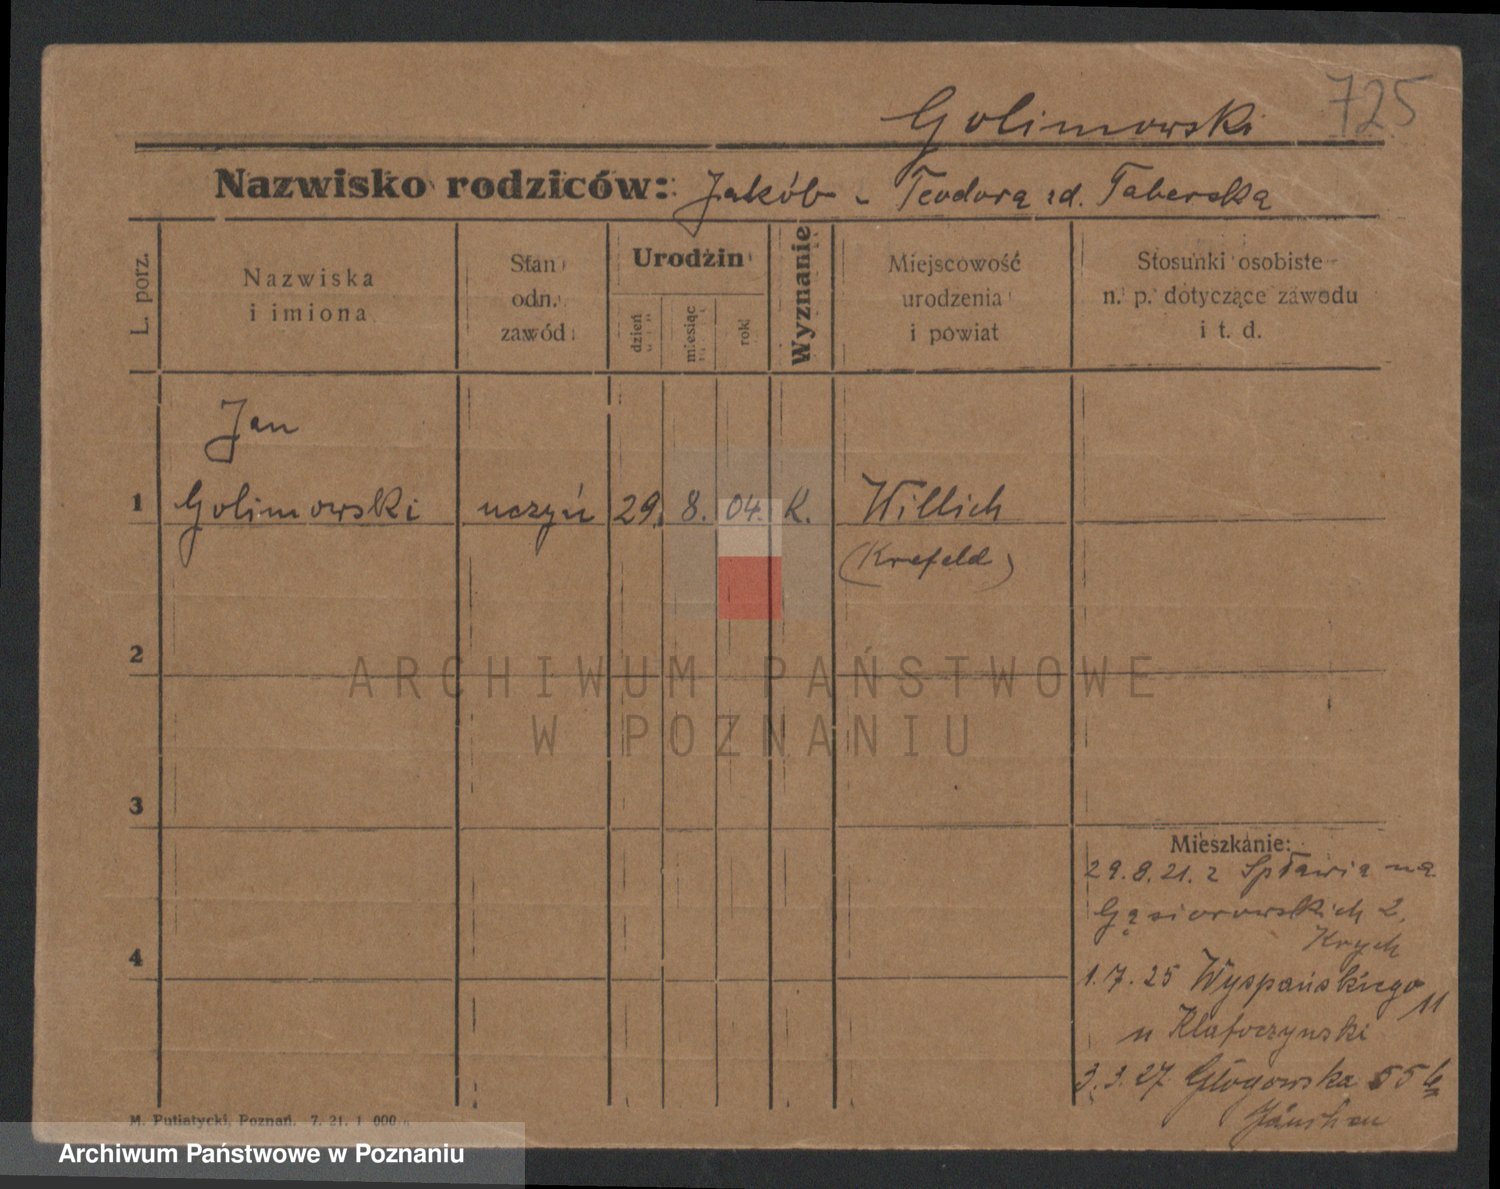 Golimowski 725
Nazwisko rodziców: Jakób - Teodora zd. Taberska
L. porz.
Nazwiska
i imiona
Stan
odn.
zawód
Urodzin
dzień
miesiąc
rok
Wyznanie
Miejscowość
urodzenia
i powiat
Stosunki osobiste
n. p. dotyczące zawodu
i t. d.
Jan
1 Golimowski uczyń 29. 8. 04. K. Willich
(Krefeld)
2
ARCHIWUM PAŃSTWOWE
W POZNANIU
3
Mieszkanie:
29.8.21. z Spławia na
Gąsiorowskich 2.
Krych
4
1.7.25 Wyspańskiego
11
u
3.3.27 Głogowska 55
M. Putiatycki, Poznań. 7. 21. 1 000
Archiwum Państwowe w Poznaniu